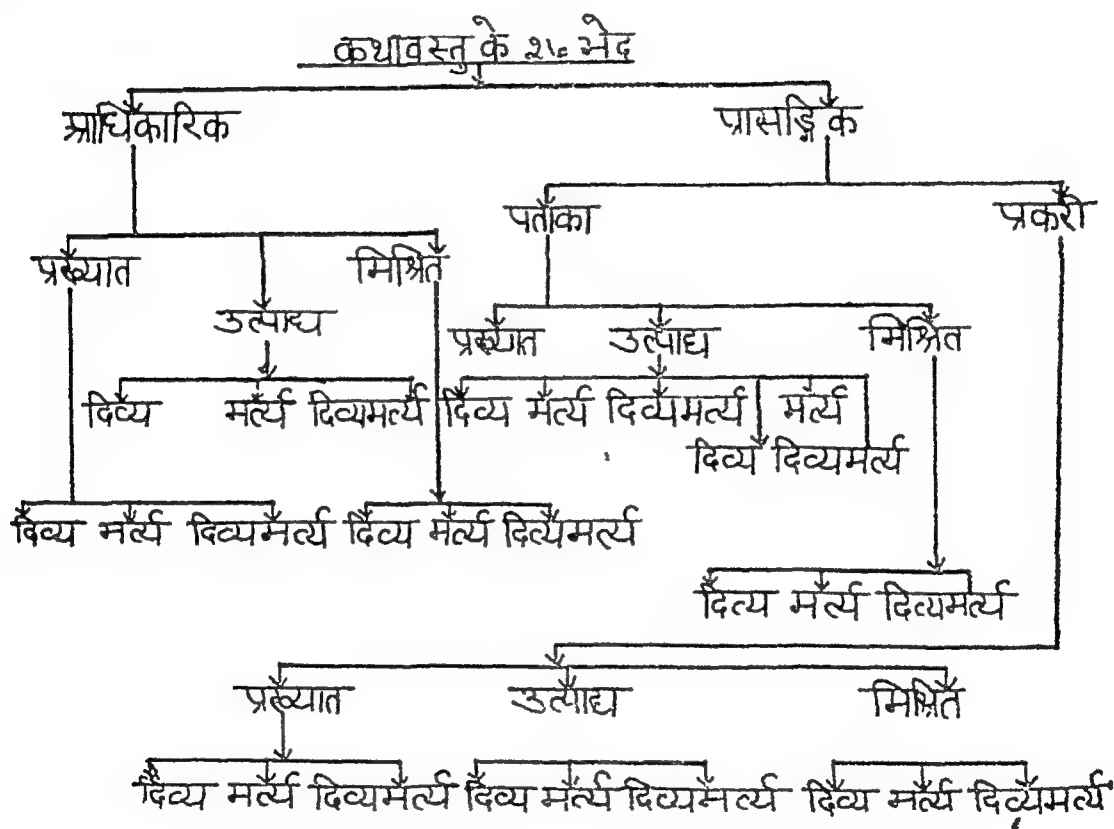 कथावस्तु के भेद
आधिकारिक प्रासङ्गिक
पताका प्रकरी
प्रख्यात मिश्रित
उत्पाद्य
प्रख्यात उत्पाद्य मिश्रित
दिव्य मर्त्य दिव्यमर्त्य दिव्य मर्त्य दिव्यमर्त्य मर्त्य
दिव्य दिव्यमर्त्य
दिव्य मर्त्य दिव्यमर्त्य दिव्य मर्त्य दिव्यमर्त्य
दिव्य मर्त्य दिव्यमर्त्य
प्रख्यात उत्पाद्य मिश्रित
दिव्य मर्त्य दिव्यमर्त्य दिव्य मर्त्य दिव्यमर्त्य दिव्य मर्त्य दिव्यमर्त्य